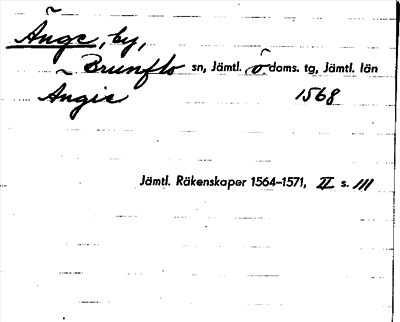 Ånge, by,
Brunflo sn, Jämtl. ö. doms. tg, Jämtl. län
Angie 1568
Jämtl. Räkenskaper 1564–1571, II s. 111